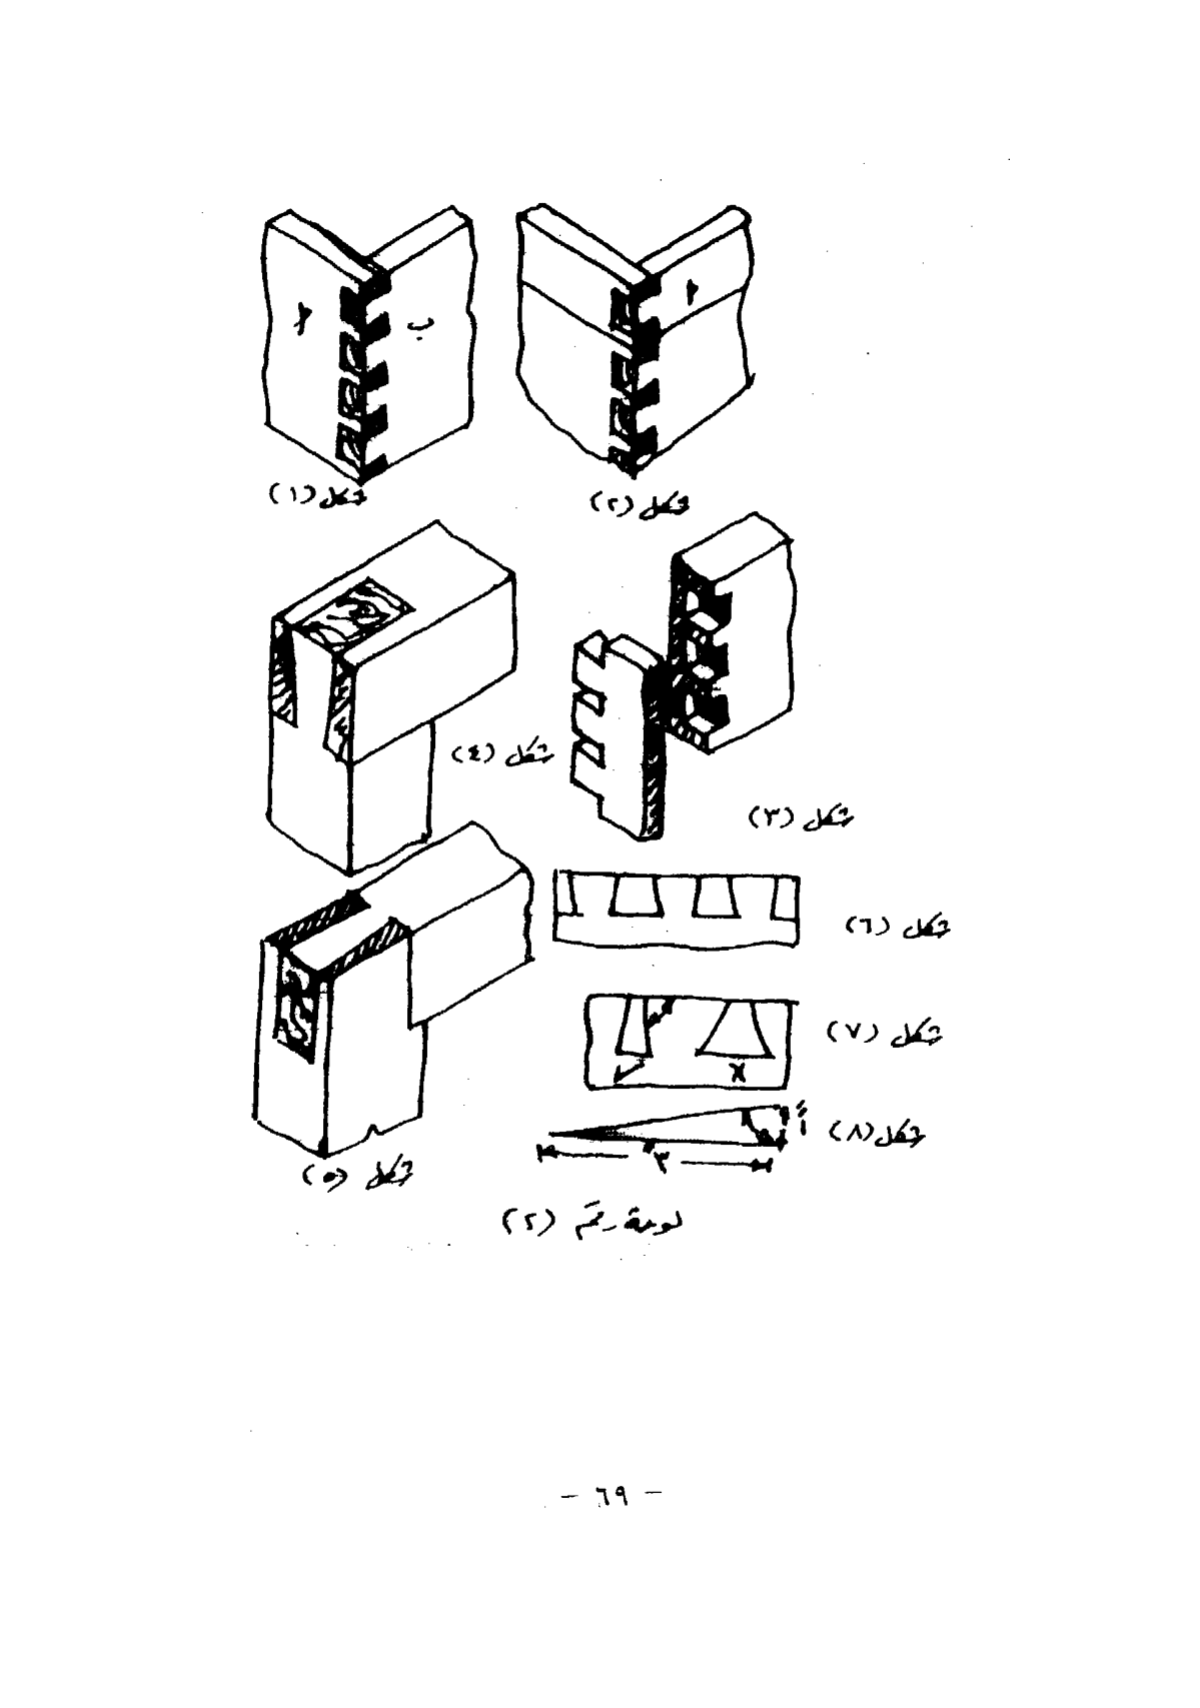 أ
ب
أ
شكل (١)
شكل (٢)
شكل (٤)
شكل (٣)
شكل (٦)
شكل (٧)
x
شكل (٨)
١"
٣"
شكل (٥)
لوحة رقم (٢)
- ٦٩ -